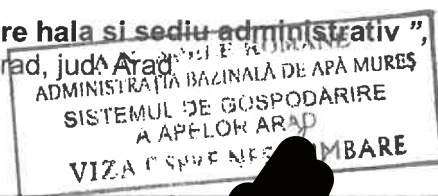 re hala si sediu administrativ ”,
rad, jud. Arad
ROMÂNE
ADMINISTRAȚIA BAZINALĂ DE APĂ MUREȘ
SISTEMUL DE GOSPODĂRIRE
A APELOR ARAD
VIZA SPRE NESCHIMBARE